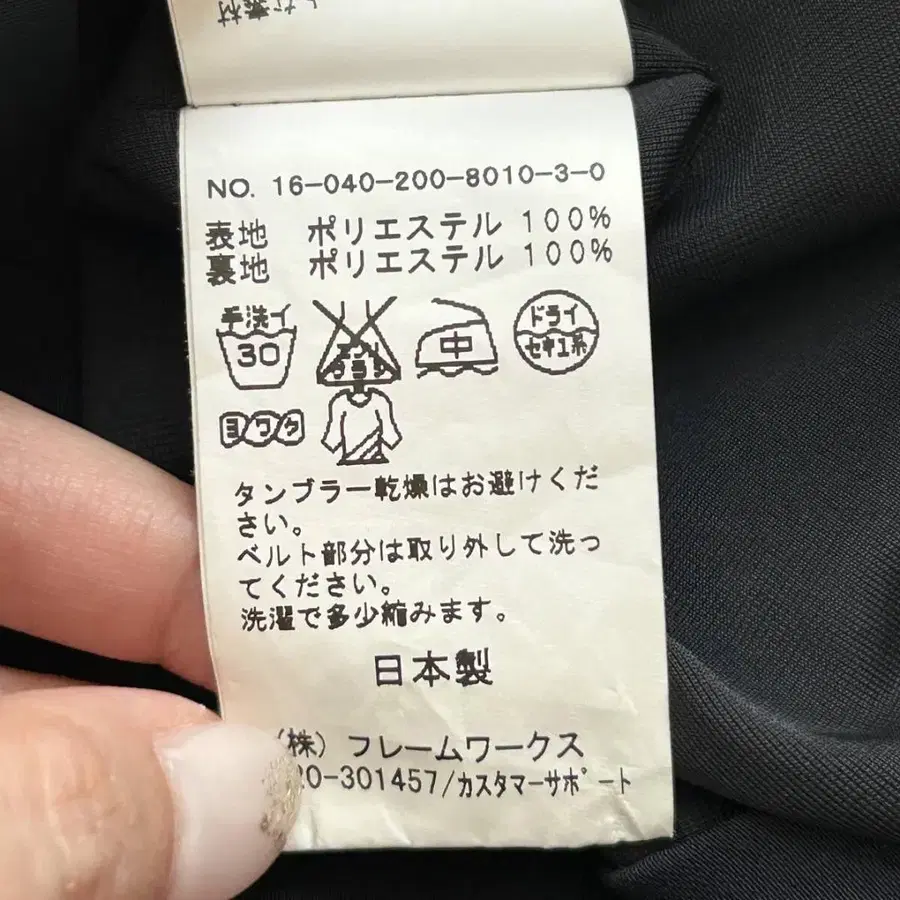 な素材
NO. 16-040-200-8010-3-0
表地 ポリエステル 100%
裏地 ポリエステル 100%
手洗イ
30
エンソ
サラシ
中
ドライ
セキユ系
ヨワク
タンブラー乾燥はお避けくだ
さい。
ベルト部分は取り外して洗っ
てください。
洗濯で多少縮みます。
日本製
(株) フレームワークス
20-301457/カスタマーサポート